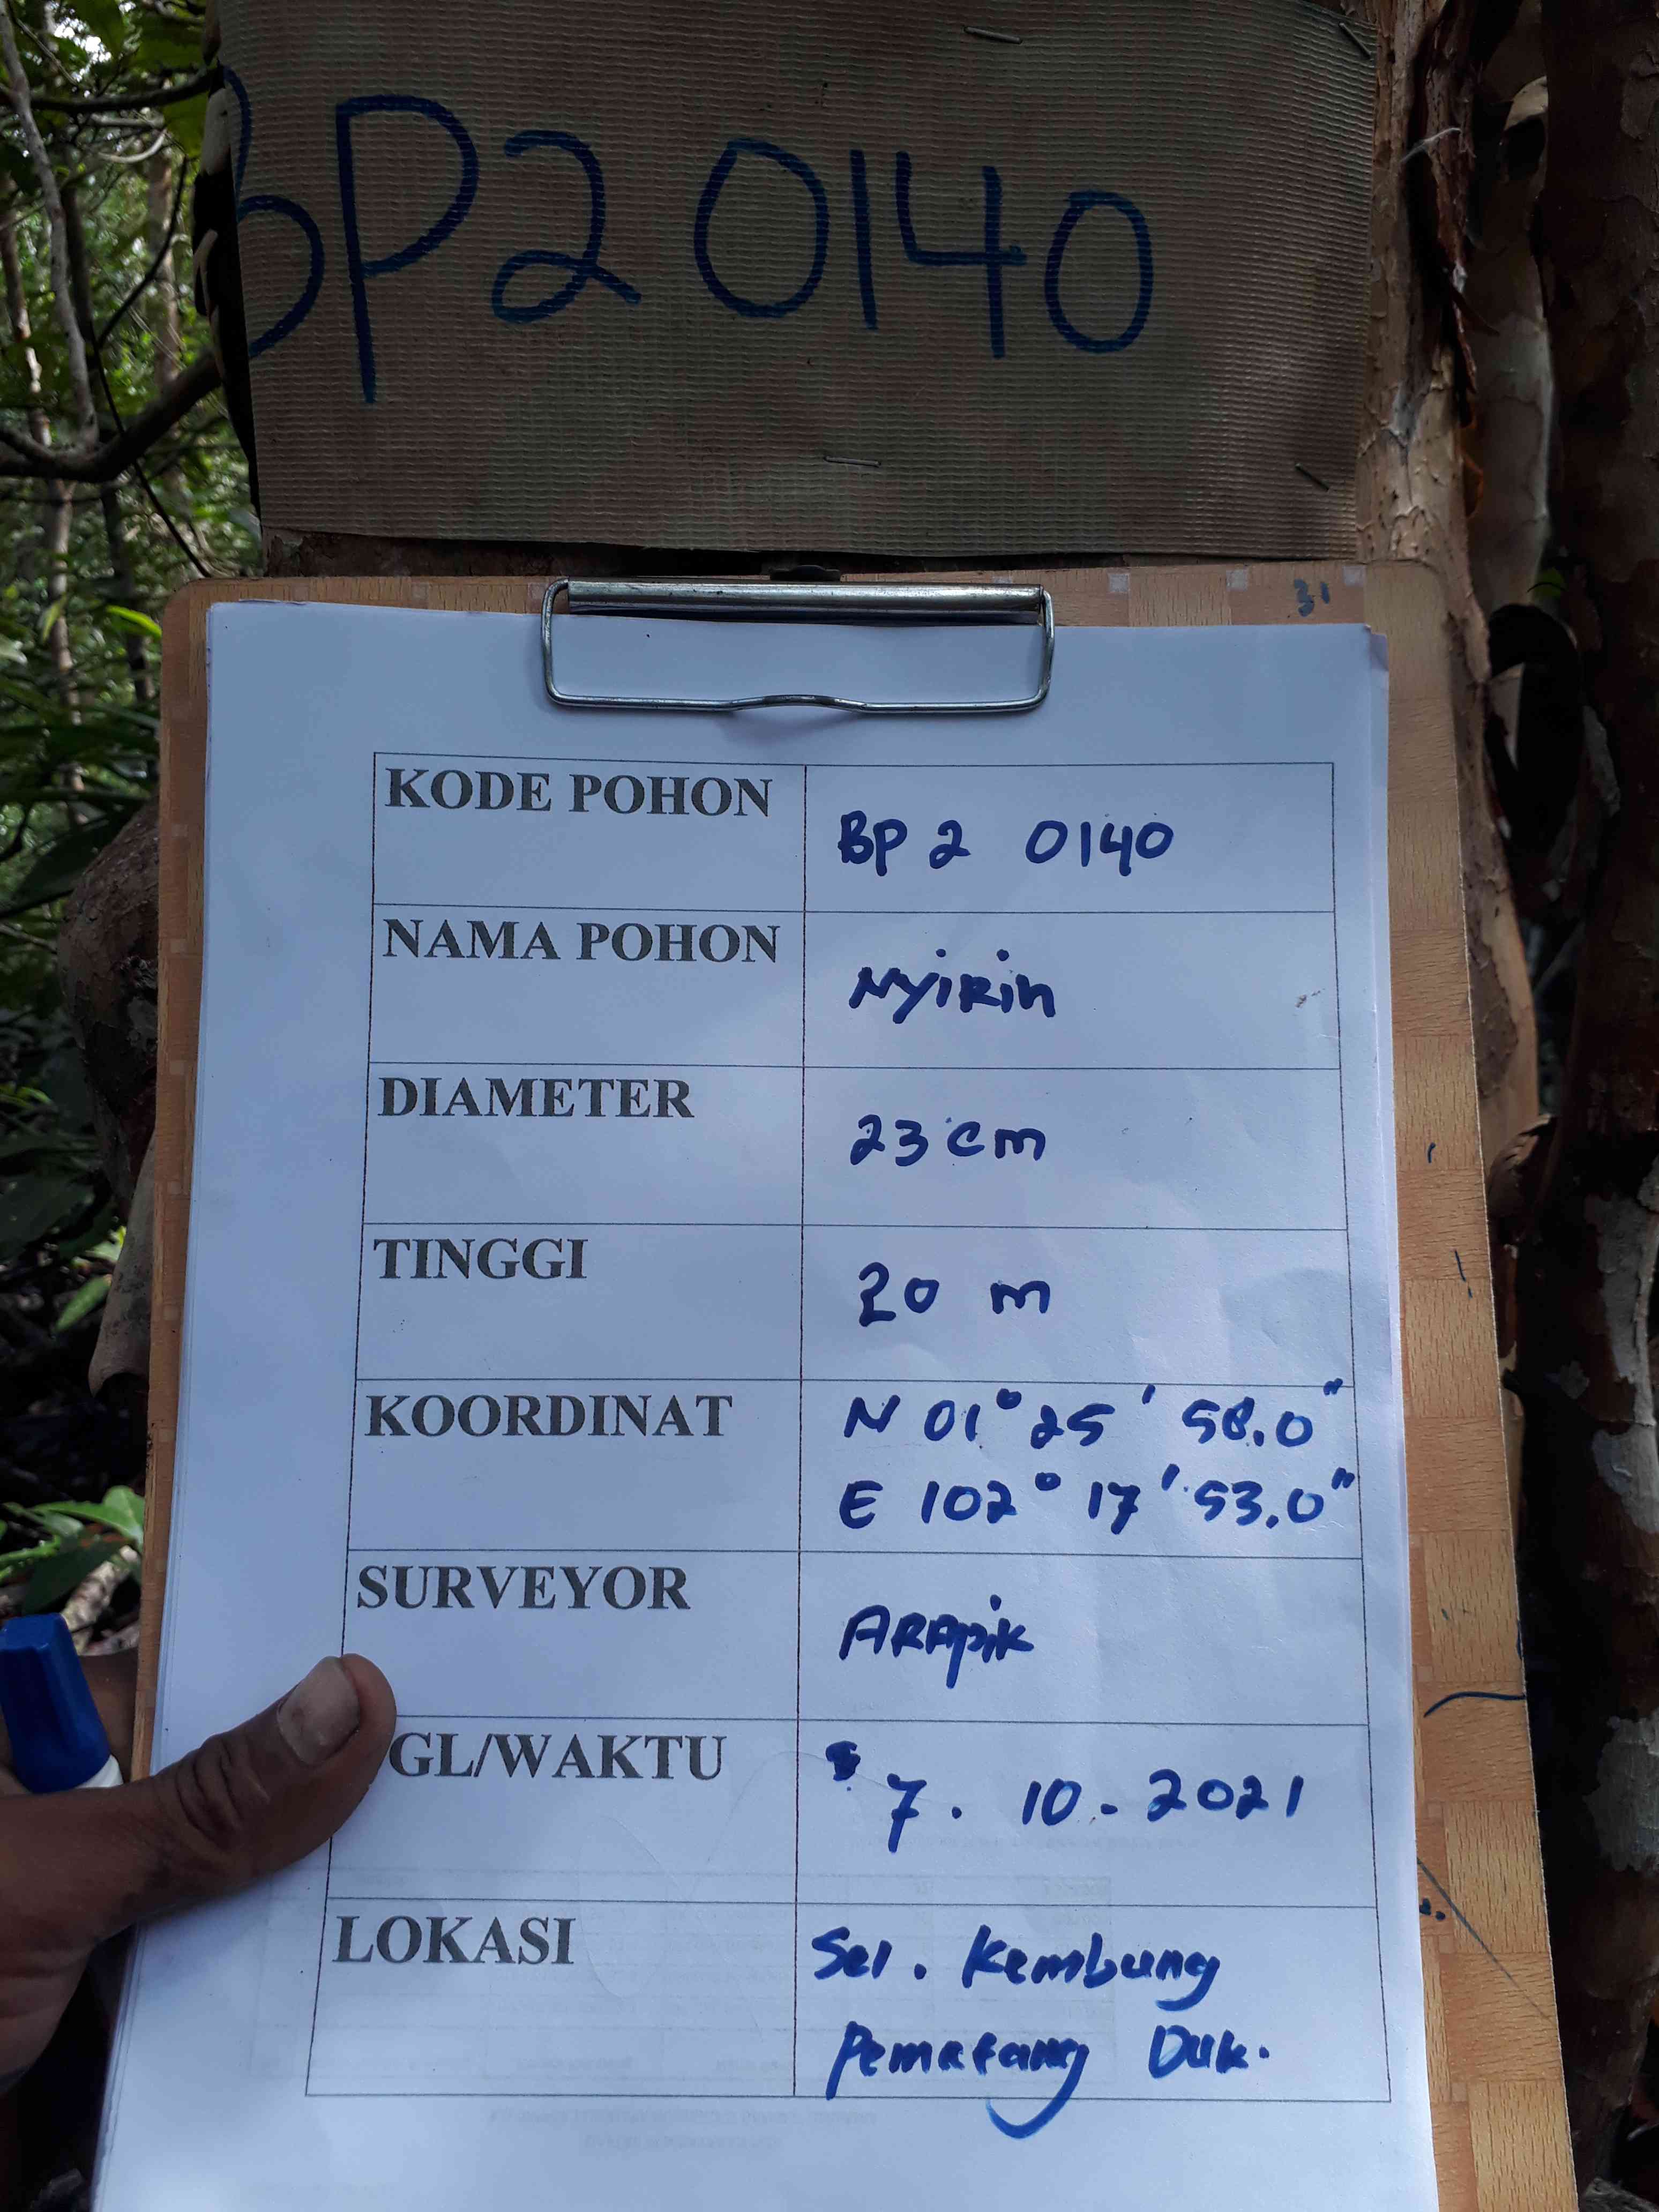 BP2 0140
31
KODE POHON
BP 2 0140
NAMA POHON
Nyirih
DIAMETER
23 cm
TINGGI
20 m
KOORDINAT
N 01° 25' 58.0"
E 102° 17' 53.0"
SURVEYOR
ARApik
GL/WAKTU
7. 10. 2021
LOKASI
Sei. Kembung
Pematang Duk.